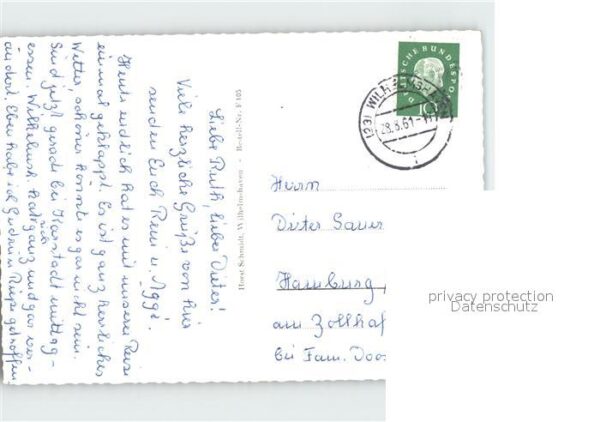 Liebe Ruth, lieber Dieter!
Viele herzliche Grüße von hier
senden Euch Reni u. 
Heute endlich hat es mit unserer Reise
einmal geklappt. Es ist ganz herrliches
Wetter, schöner konnte es gar nicht sein.
Sind jetzt gerade bei Karstadt Mittag-
essen. Wilhelmsh. hat sich ganz und gar ver-
ändert. Eben habe ich getroffen
Horst Schmidt, Wilhelmshaven - Bestell-Nr. F 105
DEUTSCHE BUNDESPOST
10
(23) WILHELMSHAVEN
28.3.61
Herrn
Dieter Sauer
Hamburg,
am Zollhaf
bei Fam. Doos
privacy protection
Datenschutz